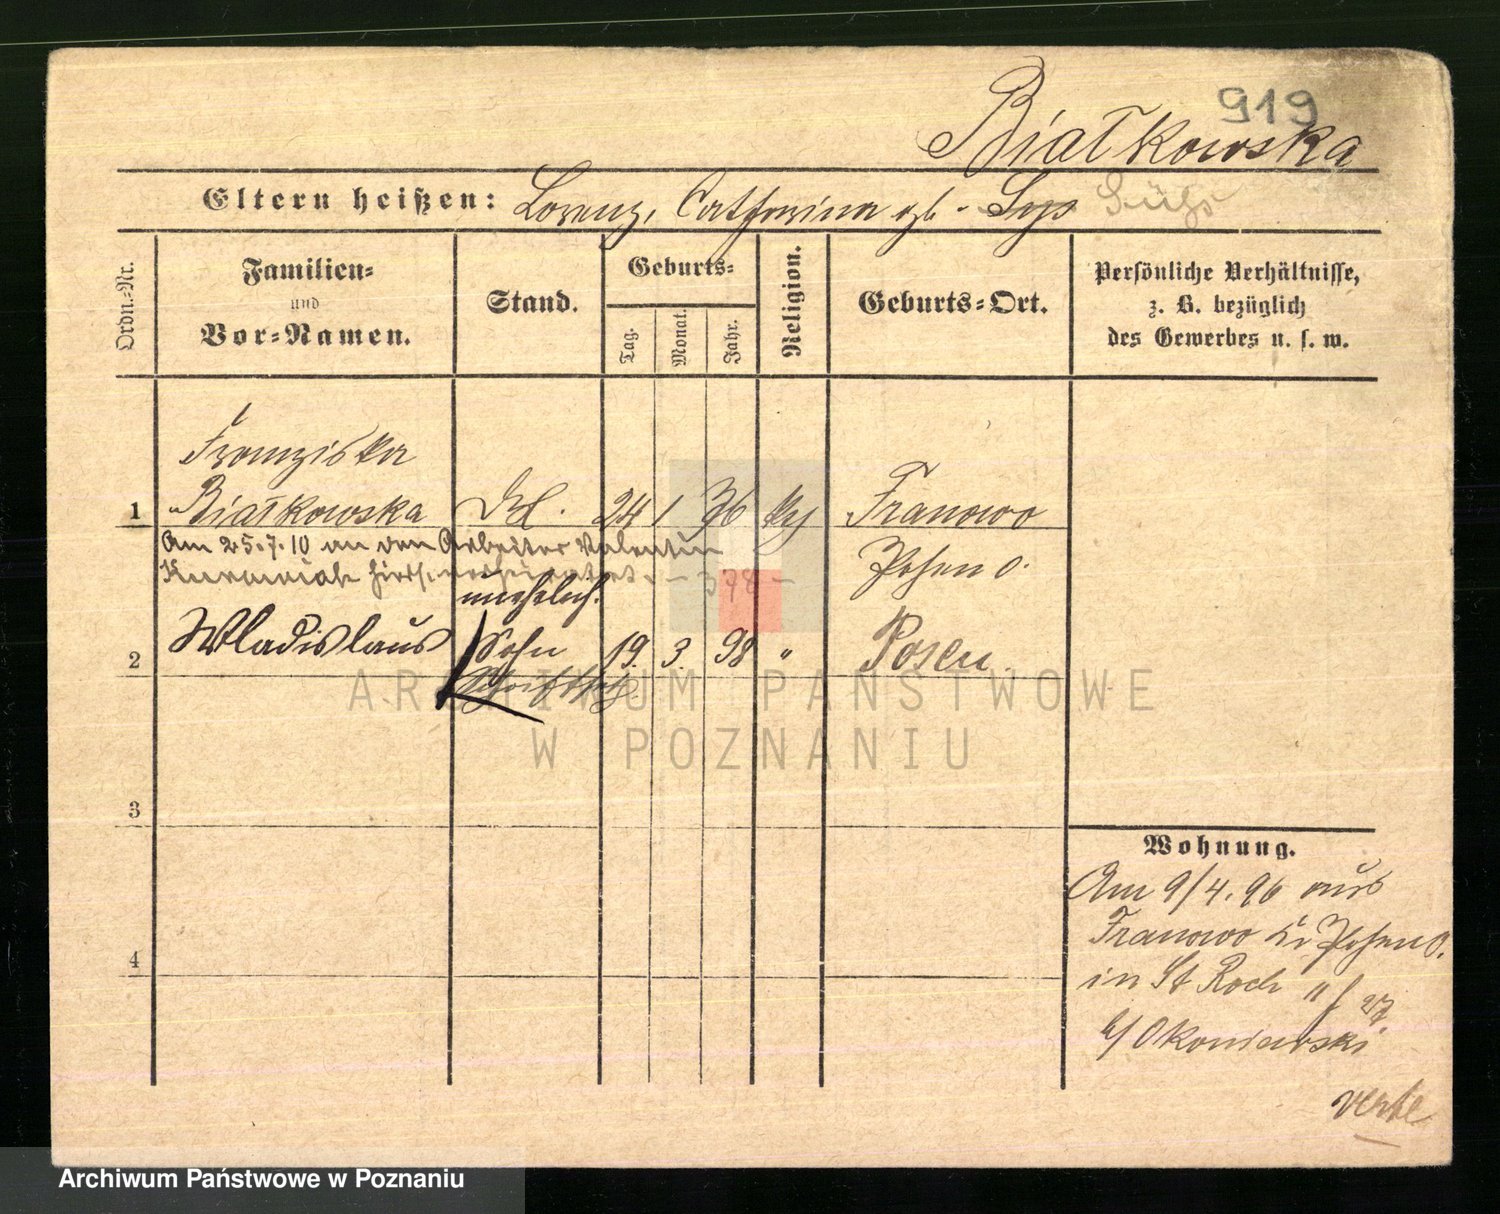 919
Białkowska
Eltern heißen: Lorenz, Catharina gb.
Ordn.-Nr.
Familien-
und
Vor-Namen.
Stand.
Geburts-
Tag.
Monat.
Jahr.
Religion.
Geburts-Ort.
Persönliche Verhältnisse,
z. B. bezüglich
des Gewerbes u. s. w.
Franziska
1 Białkowska 24 1 76 Franowo
Am 25.7.10 an den Arbeiter Valentin
hier verheiratet. - 378 -
Posen O.
unehelich.
2 Wladislaus Sohn 19. 3. 98 " Posen.
3
4
Wohnung.
Am 9/4. 96 aus
Franowo Kr Posen O.
in St Roch
b/ Okoniewski
verte
ARCHIWUM PAŃSTWOWE
W POZNANIU
Archiwum Państwowe w Poznaniu